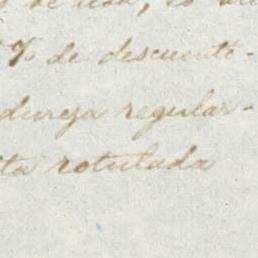 % de descuento-
dureza regular-
ta rotulada